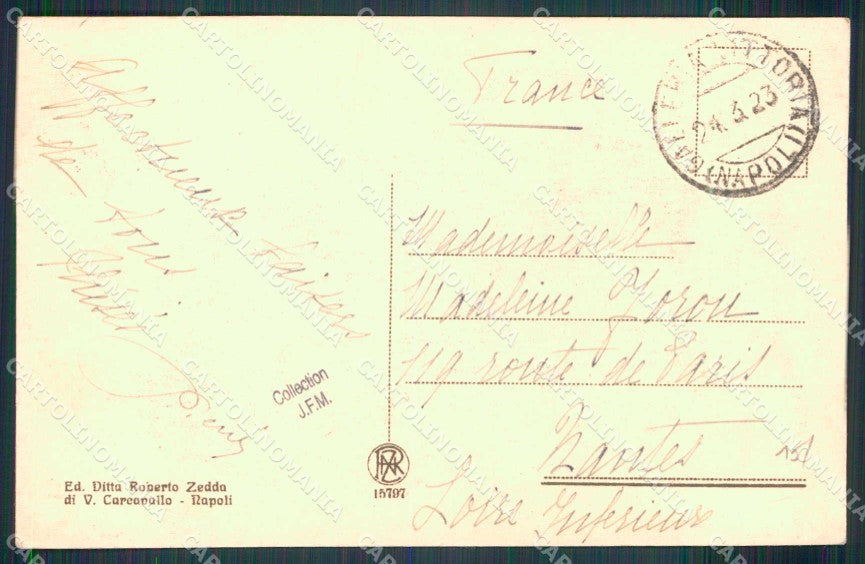 France
CAFFÈ
VITTORIA
24.3.23
(NAPOLI)
Affectueux baisers
de tous
Mademoiselle
Madeleine
119 route de Paris
Nantes
Loire Inférieure
Collection
J.F.M.
15797
Ed. Ditta Roberto Zedda
di V. Carcavallo - Napoli
CARTOLINOMANIA